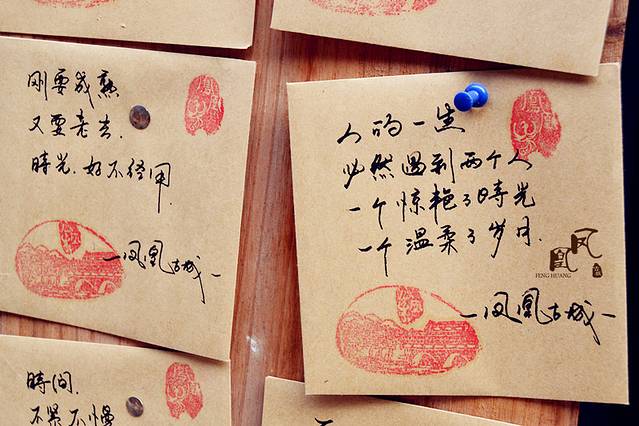 刚要成熟
又要老去.
時光.好不经用.
—凤凰古城—
人的一生
必然遇到两个人
一个惊艳了時光
一个温柔了岁月.
凤凰
FENG HUANG
—凤凰古城—
時间.
不累不慢